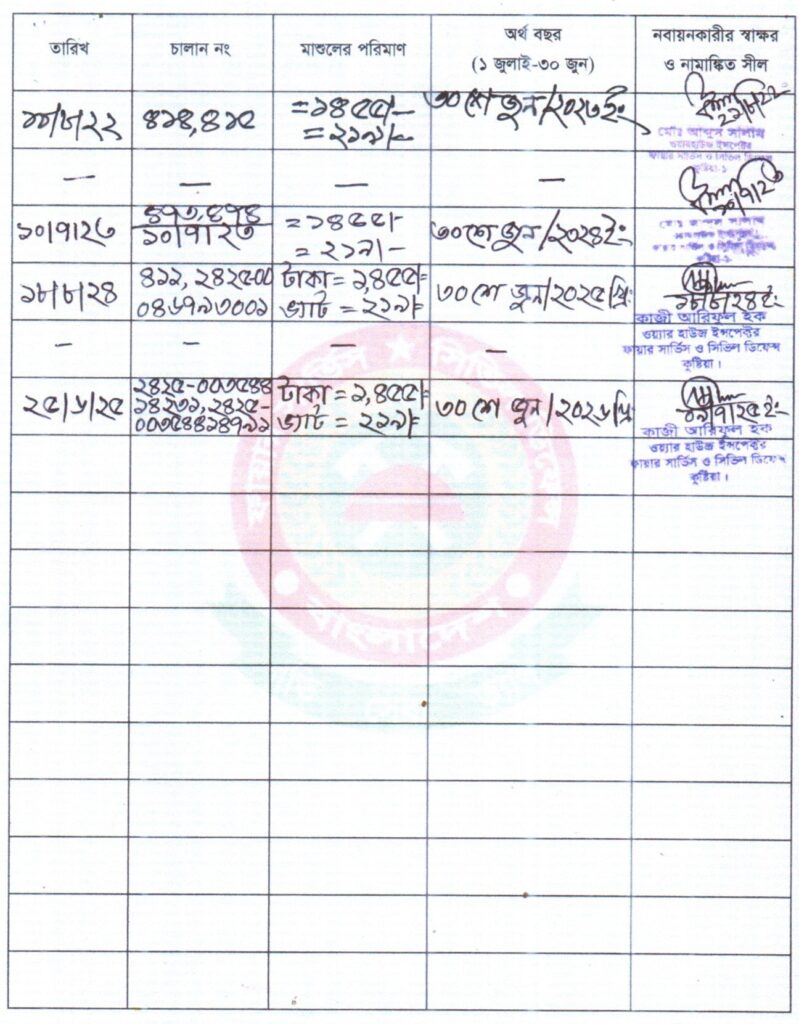 তারিখ
চালান নং
মাশুলের পরিমাণ
অর্থ বছর
(১ জুলাই-৩০ জুন)
নবায়নকারীর স্বাক্ষর
ও নামাঙ্কিত সীল
৪১৪,৪১৫
=১৪৫৫/-
=২১৯/-
৩০শে জুন/২০২৩ইং
মোঃ আব্দুস সালাম
ওয়্যারহাউজ ইন্সপেক্টর
ফায়ার সার্ভিস ও সিভিল ডিফেন্স
কুষ্টিয়া-১
১০/৭/২৩
৪৭৩,৪৭৪
১০/৭/২৩
=১৪৫৫/-
=২১৯/-
৩০শে জুন/২০২৪ইং
১০/৭/২৩
১৮/৮/২৪
৪১১, ২৪২৫-০০
০৪৬৭৯৩০০১
টাকা = ১,৪৫৫/=
ভ্যাট = ২১৯/=
৩০ শে জুন/২০২৫খ্রিঃ
১৮/৮/২৪ইং
কাজী আরিফুল হক
ওয়্যার হাউজ ইন্সপেক্টর
ফায়ার সার্ভিস ও সিভিল ডিফেন্স
কুষ্টিয়া।
২৫/৬/২৫
২৪২৫-০০৩৫৪৪
১৪২৩১, ২৪২৫-
০০৩৫৪৪১৪৭১১
টাকা = ১,৪৫৫/=
ভ্যাট = ২১৯/=
৩০ শে জুন/২০২৬খ্রিঃ
০১/৭/২৫ইং
কাজী আরিফুল হক
ওয়্যার হাউজ ইন্সপেক্টর
ফায়ার সার্ভিস ও সিভিল ডিফেন্স
কুষ্টিয়া।
বাংলাদেশ